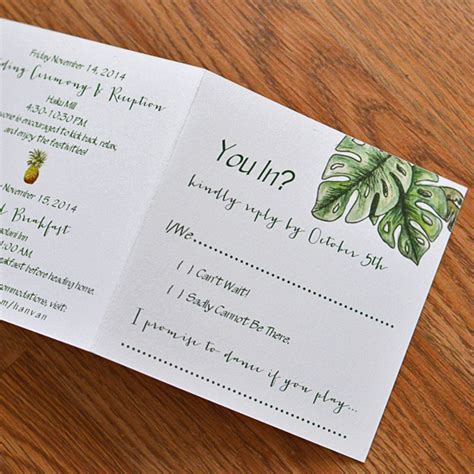 Friday November 14, 2014
Ceremony & Reception
Haiku Mill
4:30-10:30 PM
encouraged to kick back, relax,
and enjoy the festivities!
15, 2014
Breakfast
Inn
breakfast before heading home.
visit:
m/hanvan
You In?
kindly reply by October 5th
I/We
( ) Can't Wait!
( ) Sadly Cannot Be There.
I promise to dance if you play...